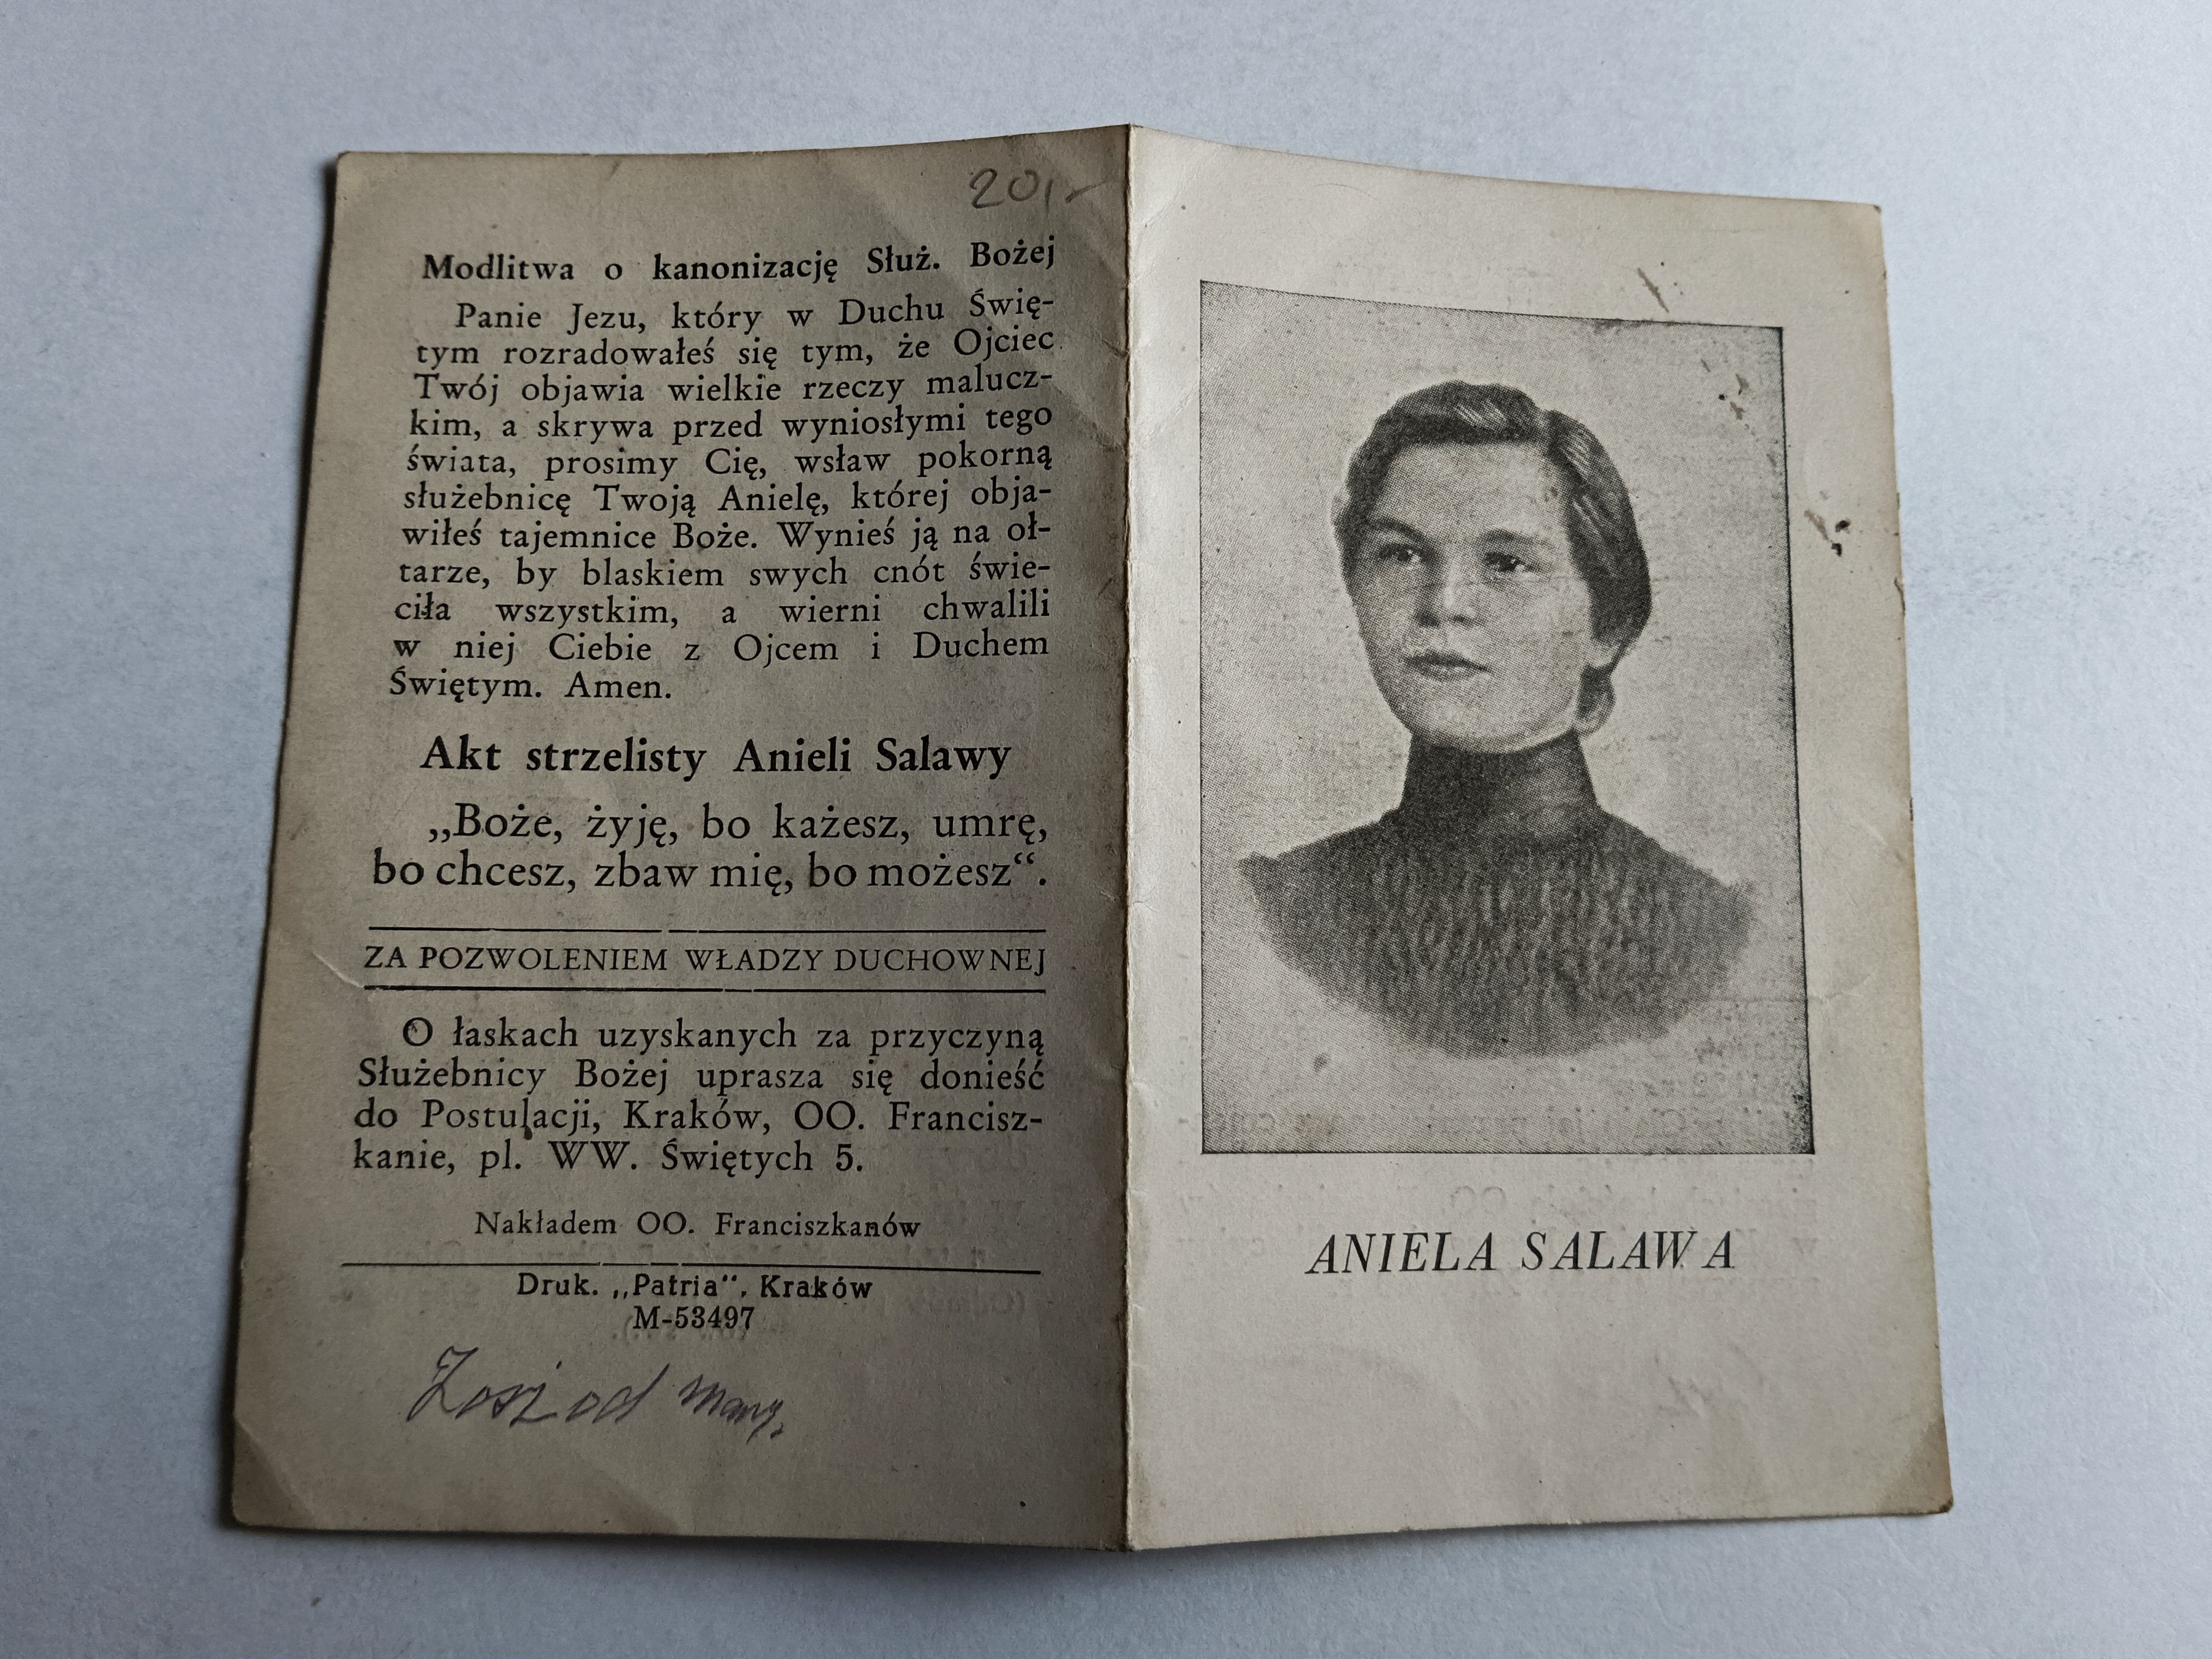 20,-
Modlitwa o kanonizację Służ. Bożej
Panie Jezu, który w Duchu Świę-
tym rozradowałeś się tym, że Ojciec
Twój objawia wielkie rzeczy malucz-
kim, a skrywa przed wyniosłymi tego
świata, prosimy Cię, wsław pokorną
służebnicę Twoją Anielę, której obja-
wiłeś tajemnice Boże. Wynieś ją na oł-
tarze, by blaskiem swych cnót świe-
ciła wszystkim, a wierni chwalili
w niej Ciebie z Ojcem i Duchem
Świętym. Amen.
Akt strzelisty Anieli Salawy
„Boże, żyję, bo każesz, umrę,
bo chcesz, zbaw mię, bo możesz“.
ZA POZWOLENIEM WŁADZY DUCHOWNEJ
O łaskach uzyskanych za przyczyną
Służebnicy Bożej uprasza się donieść
do Postulacji, Kraków, OO. Francisz-
kanie, pl. WW. Świętych 5.
Nakładem OO. Franciszkanów
Druk. „Patria“, Kraków
M-53497
od
ANIELA SALAWA